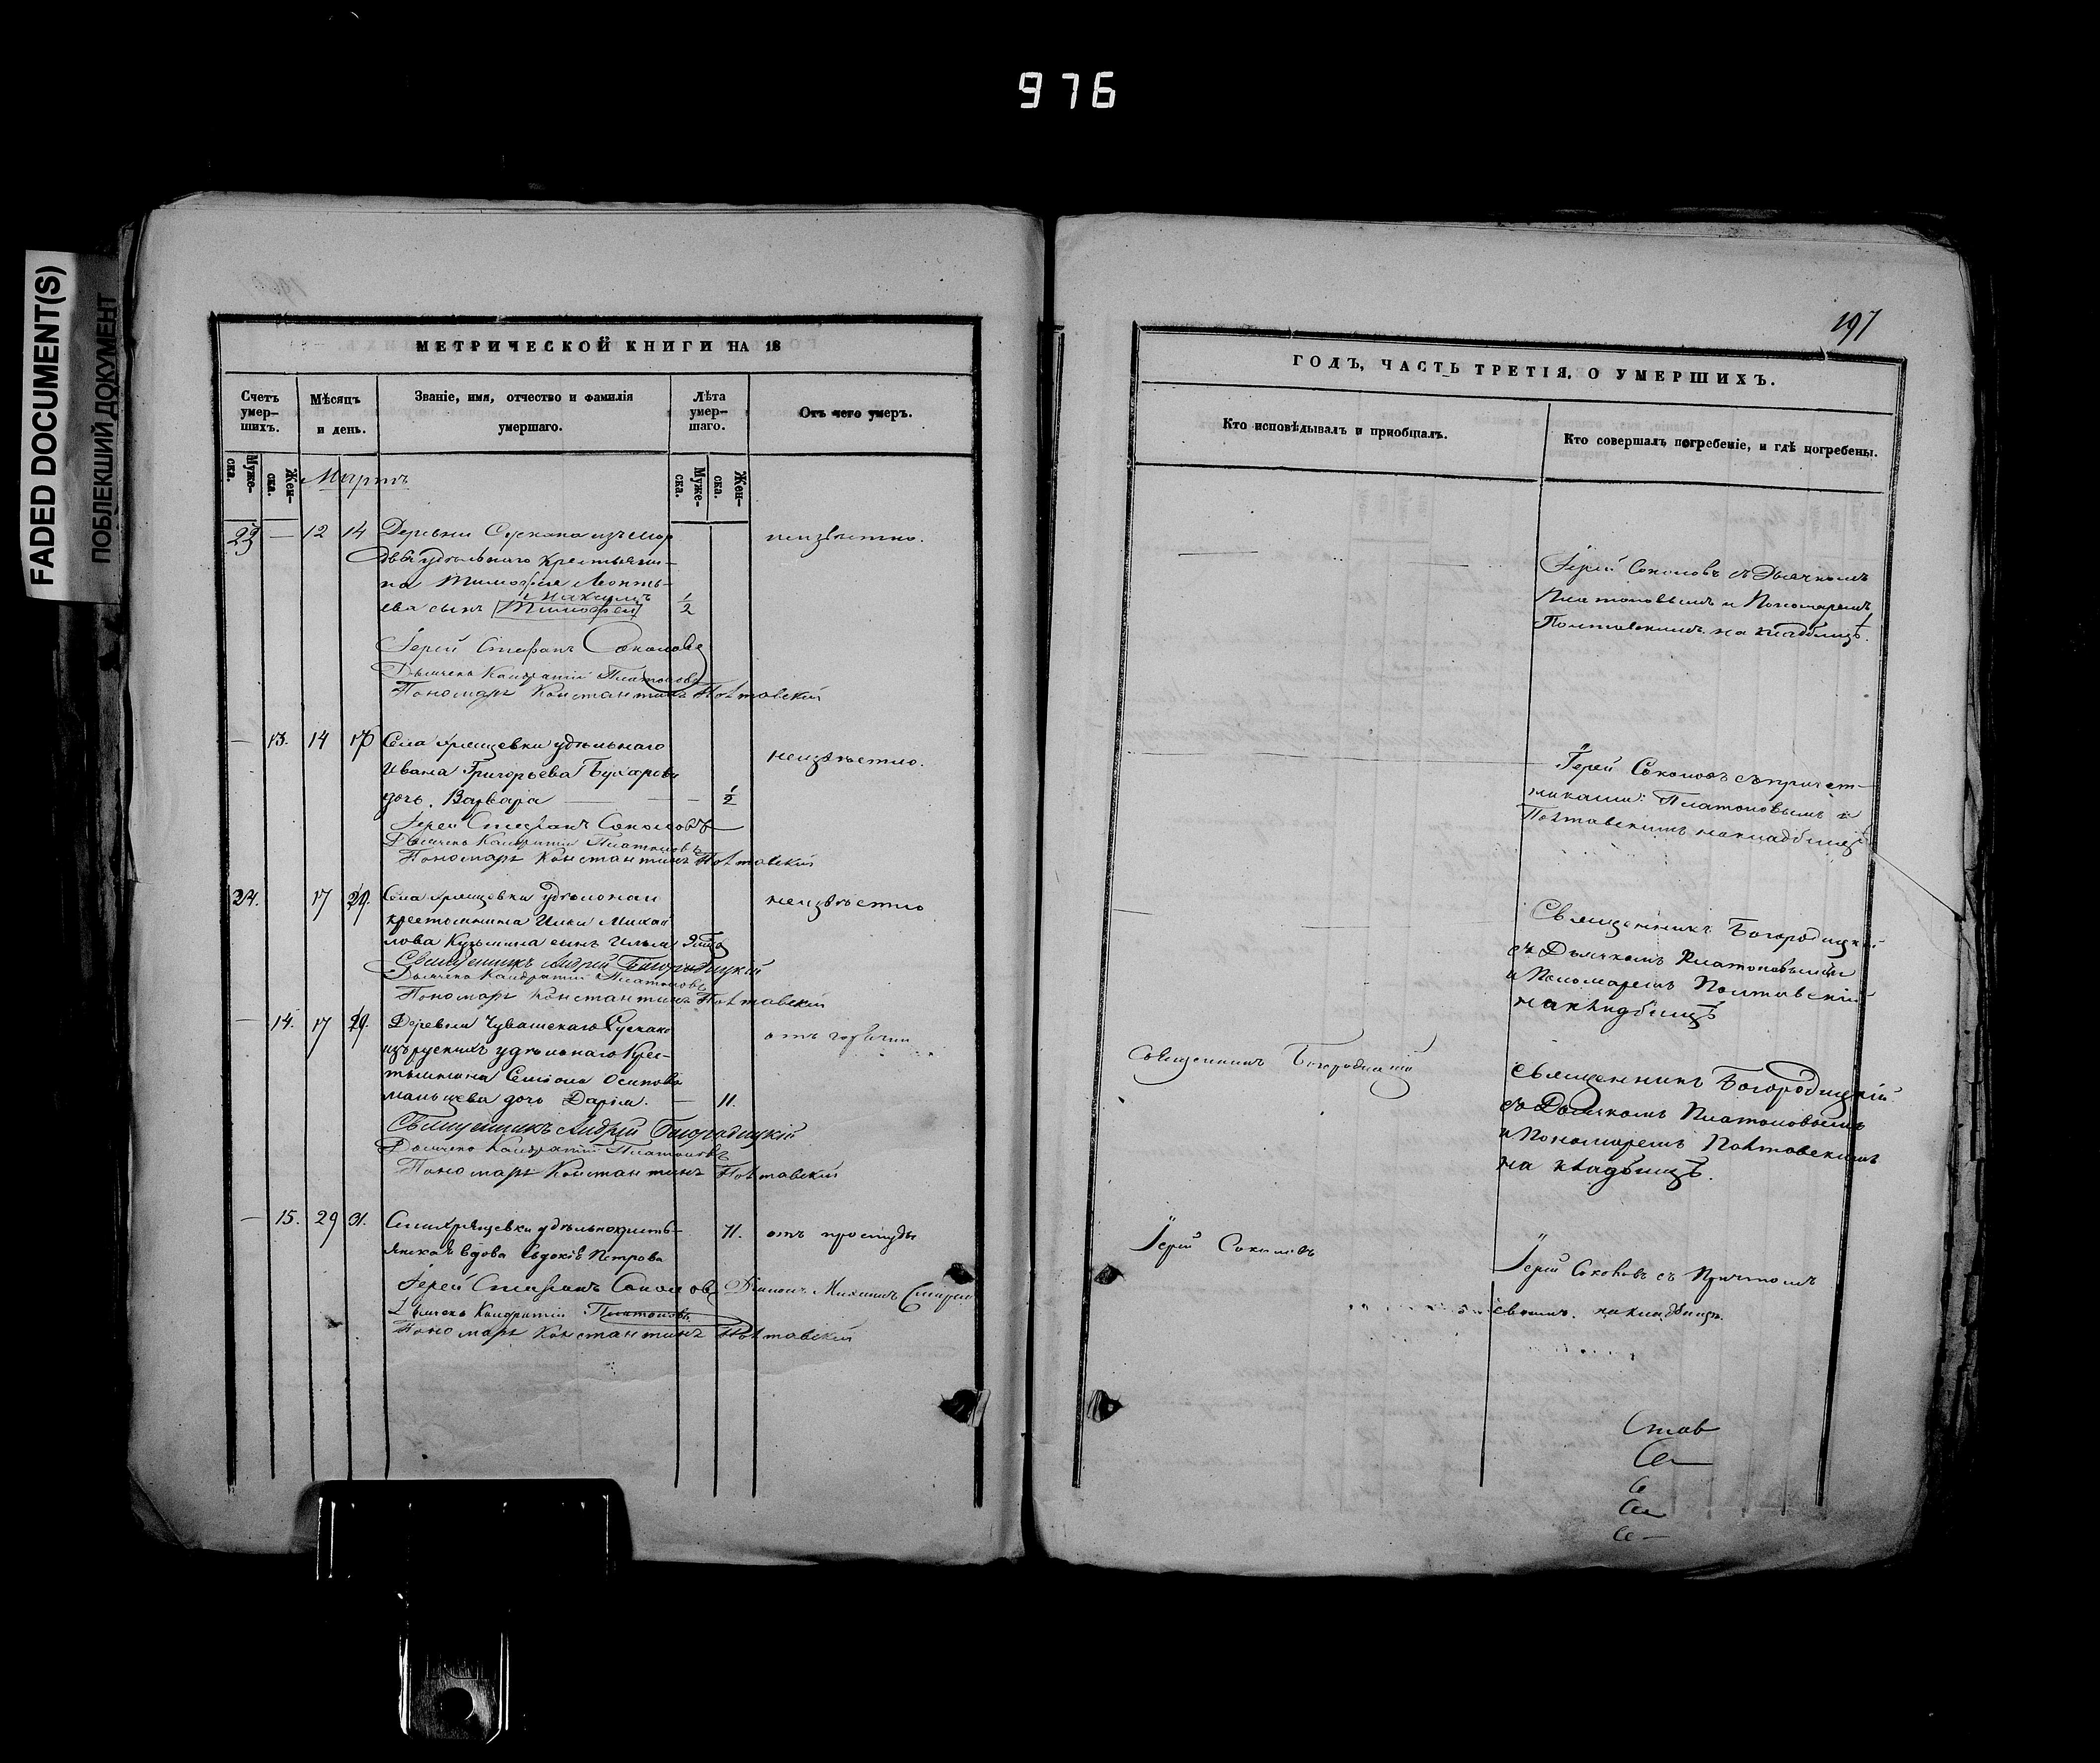 976
FADED DOCUMENT(S)
ПОБЛЕКШИЙ ДОКУМЕНТ
МЕТРИЧЕСКОЙ КНИГИ НА 18
Счетъ умер-шихъ.
Мѣсяцъ и день.
Званіе, имя, отчество и фамилія умершаго.
Лѣта умер-шаго.
Отъ чего умеръ.
Муже-ска.
Жен-ска.
Мартъ
Муже-ска.
Жен-ска.
23 — 12 14 Деревни Сускана изъ мор неизвѣстно.
двы удѣльнаго крестьяни-
на Тимофея Леонть-
ева сынъ Тимофей 1/2
Іерей Стефанъ Соколовъ
Дьячекъ Кондратій Платоновъ
Пономарь Константинъ Полтавскій
— 13. 14 16 Села Хрящевки удѣльнаго неизвѣстно.
Ивана Григорьева
дочь Варвара — — — 1/2
Іерей Стефанъ Соколовъ
Дьячекъ Кондратій Платоновъ
Пономарь Константинъ Полтавскій
24. 17 Села Хрящевки неизвѣстно
крестьянина Ильи Михай
лова Кузьмина сынъ Илья
Священникъ Андрей Богородицкій
Дьячекъ Кондратій Платоновъ
Пономарь Константинъ Полтавскій
— 14. 17 Деревни Чувашскаго Сускана отъ горячки
изъ рускихъ удѣльнаго крес-
тьянина Семіона Осипова
дочь Дарія. — 11.
Священникъ Андрей Богородицкій
Дьячекъ Кондратій Платоновъ
Пономарь Константинъ Полтавскій
— 15. 29 31. Села Хрящевки удѣльнокресть- 71. отъ простуды
янская вдова Евдокія Петрова
Іерей Стефанъ Соколовъ Діаконъ Михаилъ
Дьячекъ Кондратій Платоновъ
Пономарь Константинъ Полтавскій
197
ГОДЪ, ЧАСТЬ ТРЕТІЯ, О УМЕРШИХЪ.
Кто исповѣдывалъ и пріобщалъ.
Кто совершалъ погребеніе, и гдѣ погребены.
Іерей Соколовъ съ Дьячкомъ
Платоновымъ и Пономаремъ
Полтавскимъ на кладбищѣ.
Іерей Соколовъ съ причет-
никами: Платоновымъ и
Полтавскимъ на кладбищѣ
Священникъ Богородицкій
съ Дьячкомъ Платоновымъ
и Пономаремъ Полтавскій
на кладбищѣ
Священникъ Богородицкій
Священникъ Богородицкій
съ Дьячкомъ Платоновымъ
и Пономаремъ Полтавскимъ
на кладбищѣ.
Іерей Соколовъ
Іерей Соколовъ съ Причтомъ
своимъ. на кладбищѣ.
Став
Се
С
Се
Се